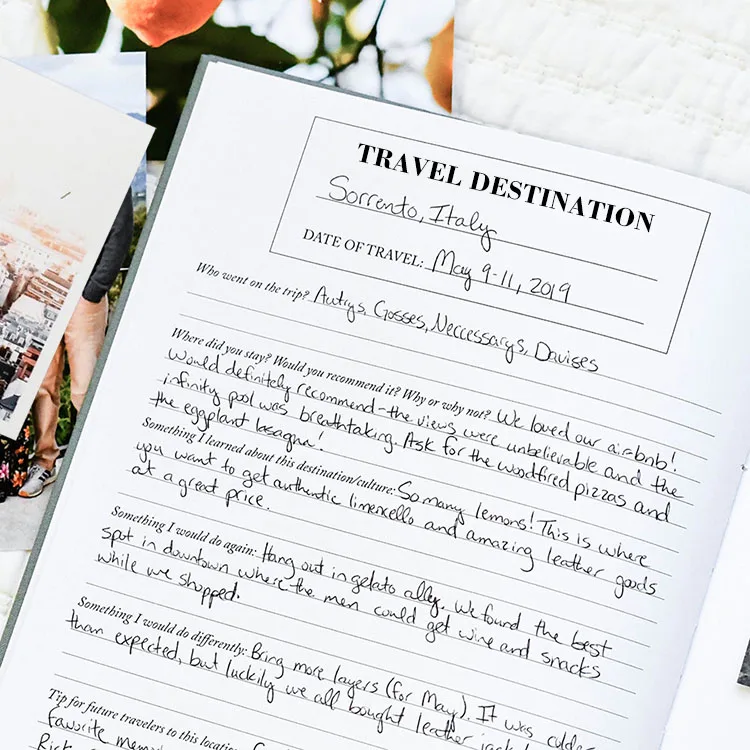 TRAVEL DESTINATION
Sorrento, Italy
DATE OF TRAVEL: May 9-11, 2019
Who went on the trip? Autrys, Gosses, Neccessarys, Davises
Where did you stay? Would you recommend it? Why or why not? We loved our airbnb!
Would definitely recommend - the views were unbelievable and the
infinity pool was breathtaking. Ask for the woodfired pizzas and
the eggplant lasagna!
Something I learned about this destination/culture: So many lemons! This is where
you want to get authentic limencello and amazing leather goods
at a great price.
Something I would do again: Hang out in gelato alley. We found the best
spot in downtown where the men could get wine and snacks
while we shopped.
Something I would do differently: Bring more layers (for May). It was colder
than expected, but luckily we all bought leather
Tip for future travelers to this location:
favorite
Rick